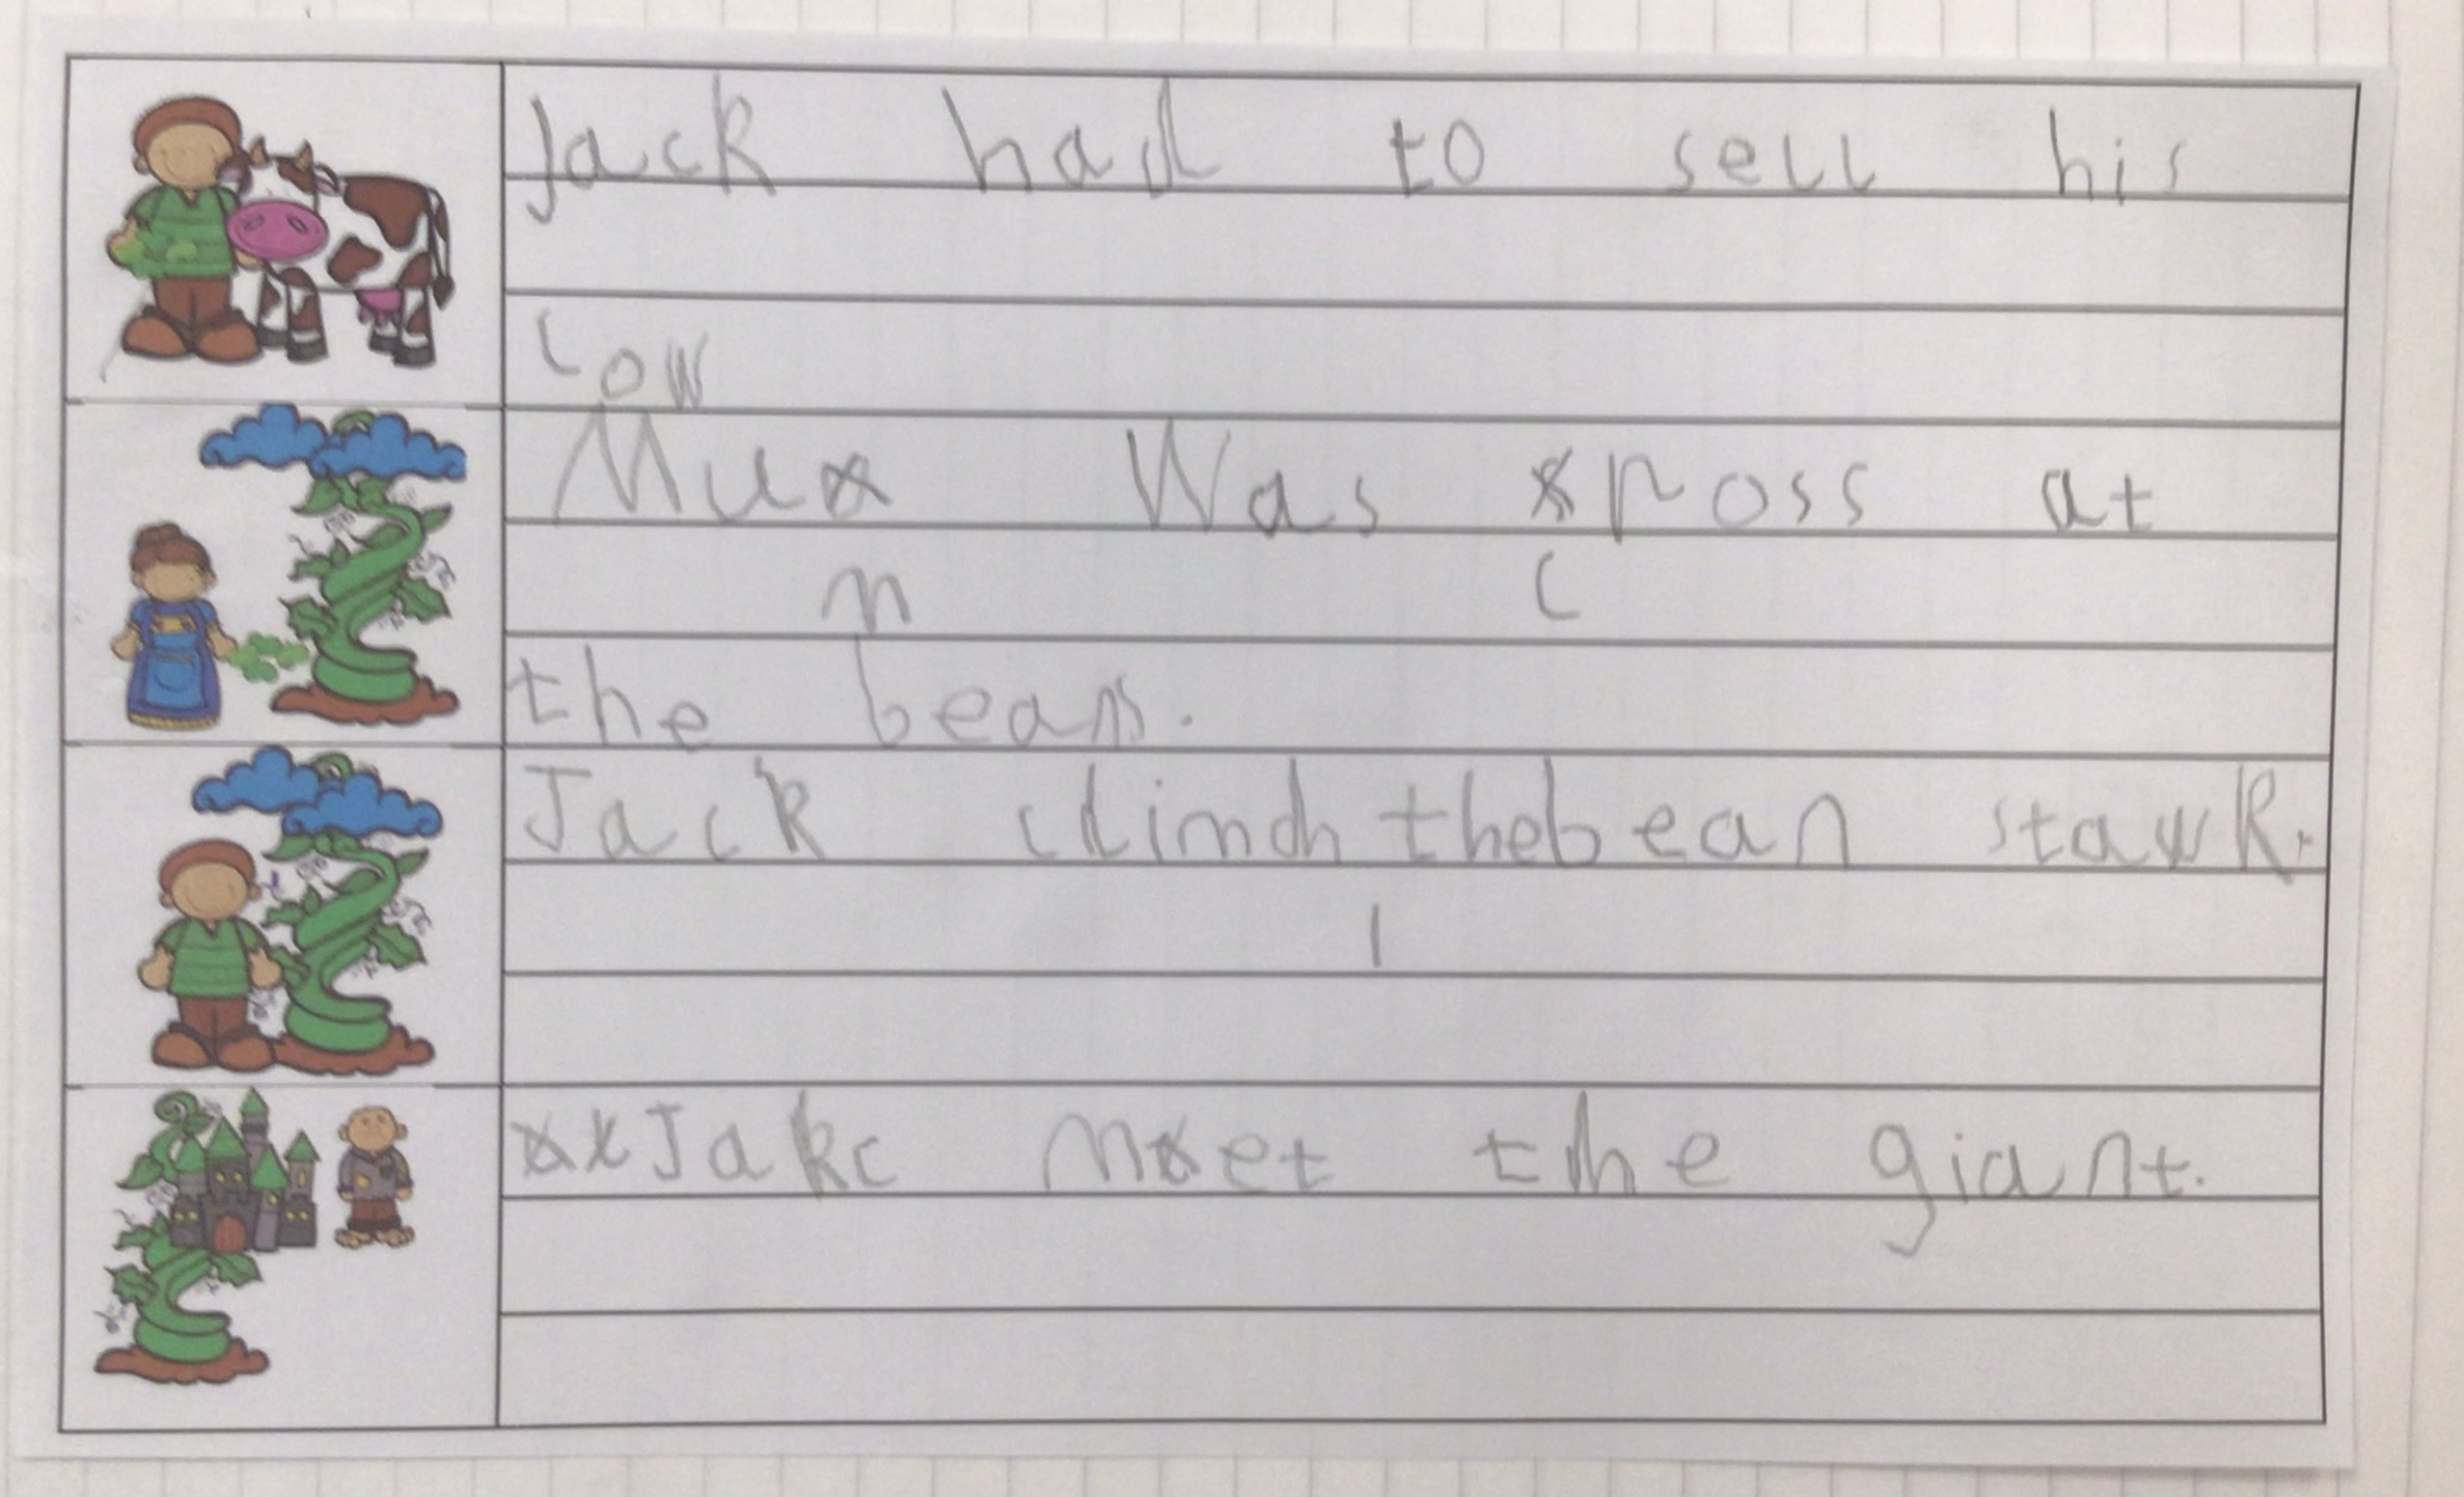 Jack had to sell his
cow
Mux Was xross at
m c
the beans.
Jack climd thebean stawk.
l
xxJakc mxet the giant.